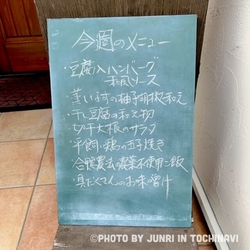 今週のメニュー
・豆腐入ハンバーグ
和風ソース
・蒸しなすの柚子胡椒和え
・干し豆腐の和え物
・切干大根のサラダ
・平飼い鶏の玉子焼き
・合鴨農法の農薬不使用ご飯
・具だくさんのお味噌汁
©PHOTO BY JUNRI IN TOCHINAVI